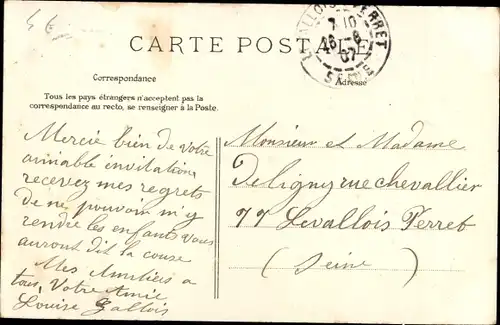 4 E
CARTE POSTALE
LEVALLOIS-PERRET
7 10
26 -8
07
SEINE
Correspondance
Adresse
Tous les pays étrangers n'acceptent pas la
correspondance au recto, se renseigner à la Poste.
Mercie bien de votre
aimable invitation
recevez mes regrets
de ne pouvoir m'y
rendre les enfants vous
auront dit la cause
Mes Amitiés a
tous, Votre Amie
Louise Gallois
Monsieur et Madame
Deligny rue Chevallier
77 Levallois Perret
(Seine)